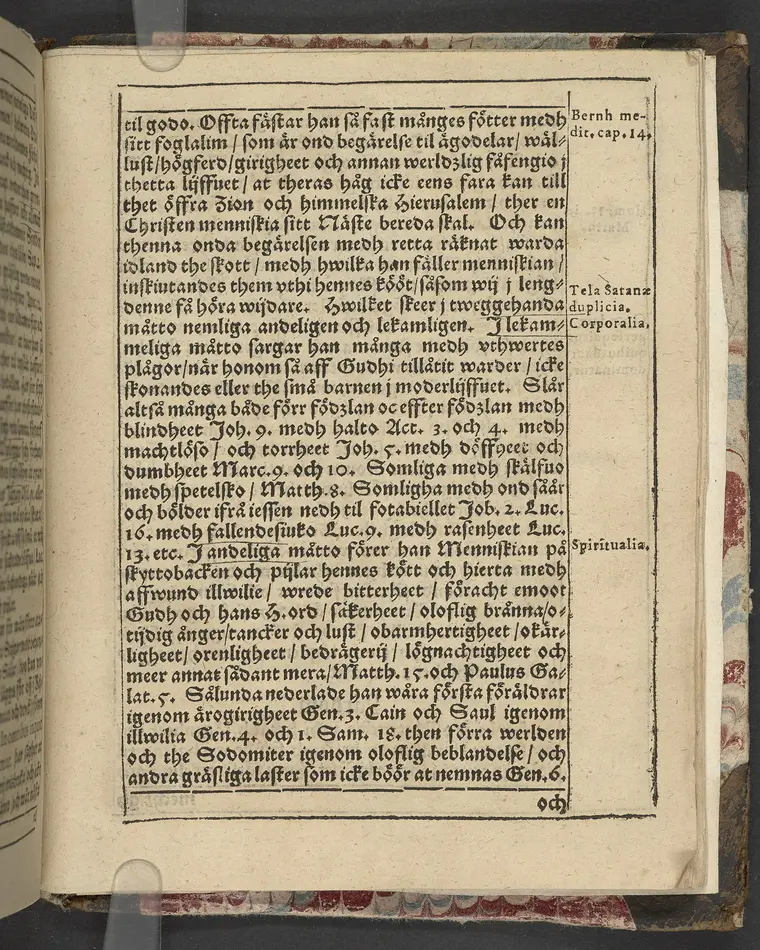 til godo. Offta fästar han så fast månges fötter medh
sitt foglalim / som är ond begärelse til ägodelar / wäl-
lust / högferd / girigheet och annan werldzlig fåfengio j
thetta lijffuet / at theras håg icke eens fara kan till
thet öffra Zion och himmelska Hierusalem / ther en
Christen menniskia sitt Näste bereda skal. Och kan
thenna onda begärelsen medh retta räknat warda
ibland the skott / medh hwilka han fäller menniskian /
inskiutandes them vthi hennes kött / såsom wij j leng-
denne få höra wijdare. Hwilket skeer j tweggehanda
måtto nemliga andeligen och lekamligen. J lekam-
meliga måtto sargar han många medh vthwertes
plågor / när honom så aff Gudhi tillåtit warder / icke
skonandes eller the små barnen j moderlijffuet. Slår
altså många både förr födzlan oc effter födzlan medh
blindheet Joh. 9. medh halto Act. 3. och 4. medh
machtlöso / och torrheet Joh. 5. medh döffheet och
dumbheet Marc. 9. och 10. Somliga medh skälfuo
medh spetelsko / Matth. 8. Somligha medh ond såår
och bölder ifrå iessen nedh til fotabiellet Job. 2. Luc.
16. medh fallendesiuko Luc. 9. medh rasenheet Luc.
13. etc. J andeliga måtto förer han Menniskian på
skyttobacken och pijlar hennes kött och hierta medh
affwund illwilie / wrede bitterheet / föracht emoot
Gudh och hans H. ord / säkerheet / oloflig bränna / o-
tijdig ånger / tancker och lust / obarmhertigheet / okär-
ligheet / orenligheet / bedrägerij / lögnachtigheet och
meer annat sådant mera / Matth. 15. och Paulus Ga-
lat. 5. Sålunda nederlade han wåra första föräldrar
igenom ärogirigheet Gen. 3. Cain och Saul igenom
illwilia Gen. 4. och 1. Sam. 18. then förra werlden
och the Sodomiter igenom oloflig beblandelse / och
andra gräsliga laster som icke böör at nemnas Gen. 6.
och
Bernh me-
dit. cap. 14.
Tela Satanæ
duplicia.
Corporalia.
Spiritualia.